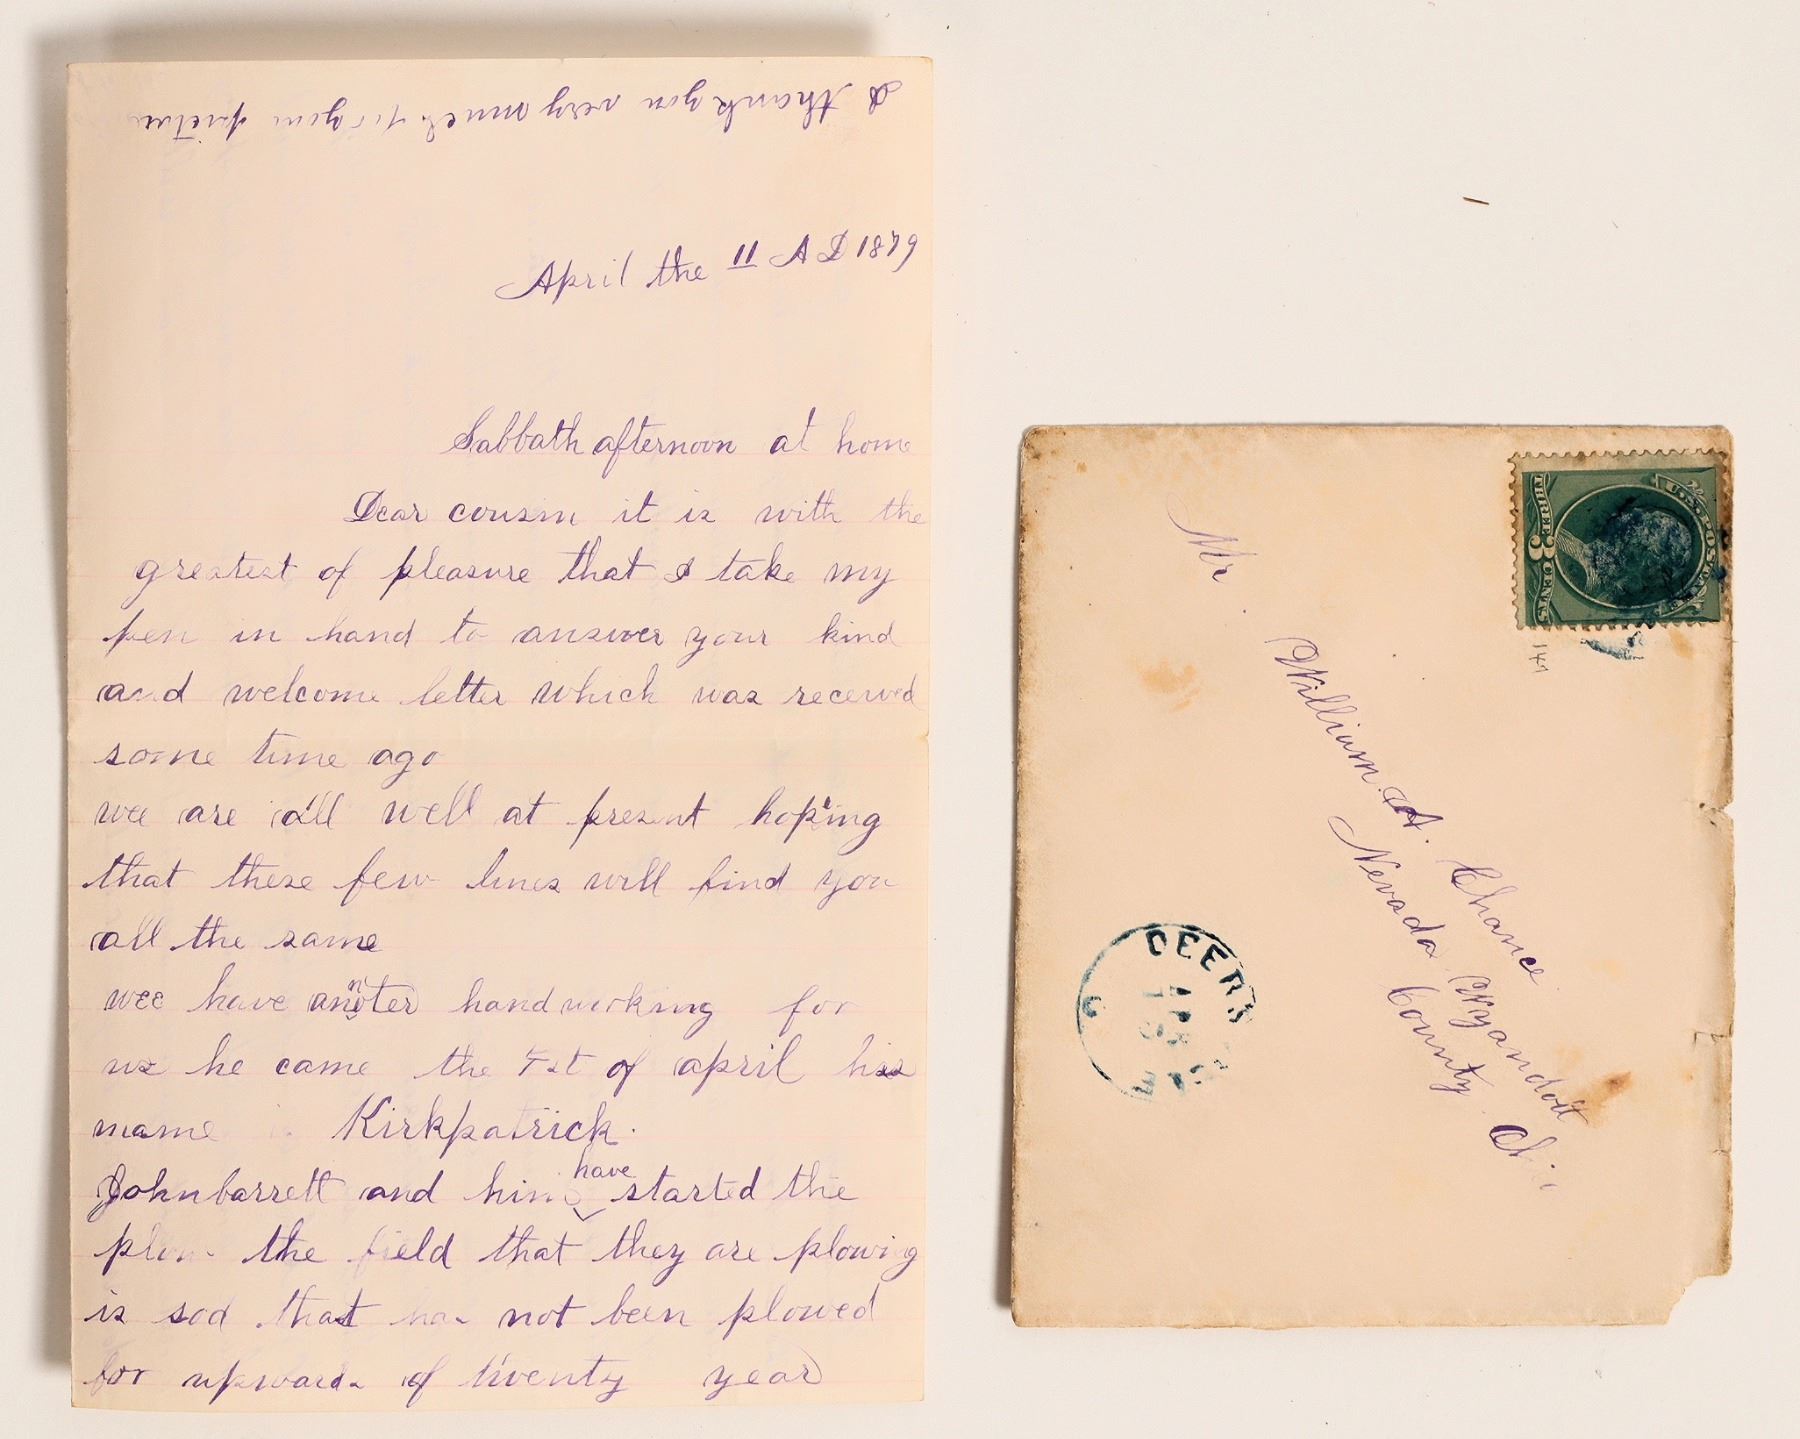 I thank you very much for your picture
April the 11 A D 1879
Sabbath afternoon at home
Dear cousin it is with the
greatest of pleasure that I take my
pen in hand to answer your kind
and welcome letter which was received
some time ago
wee are all well at present hoping
that these few lines will find you
all the same
wee have another hand working for
us he came the 1st of april his
name is Kirkpatrick.
John barrett and him have started the
plow the field that they are plowing
is sod that has not been plowed
for upwards of twenty year
U.S. POSTAGE
THREE 3 CENTS
147
Mr. William A. Chance
Nevada Wyandott
County
DEER
APR